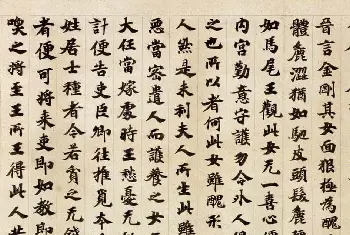 晉言金剛其女面貌極為醜
體麤澀猶如駝皮頭髮麤
如馬尾王觀此女无一喜心便
內宮勤意守護勿令外人得
之也所以者何此女雖醜形
人然是末利夫人所生此雖
惡當密遣人而護養之女
大任當嫁處時王愁憂无
計便告吏臣卿往推覓本
姓居士種者今若貧乏无錢
者便可將來吏即如教即
喚之將至王所王得此人共